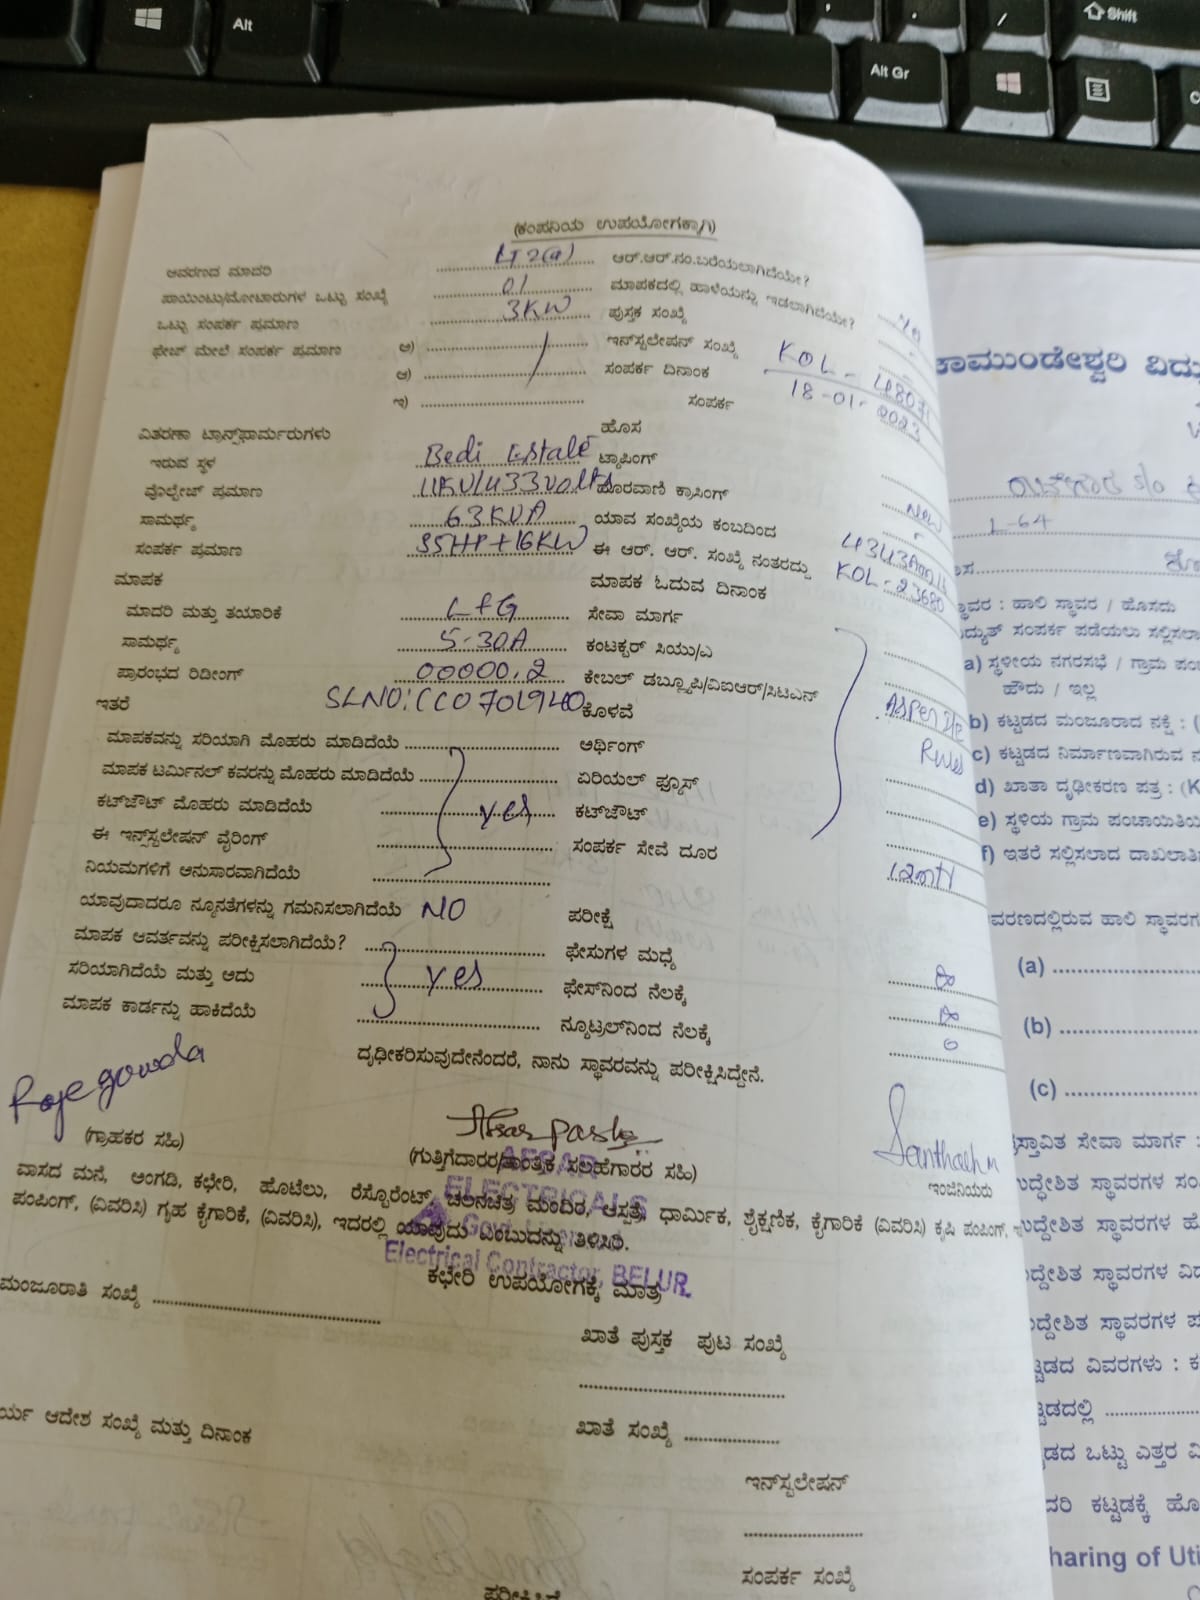 Alt
Alt Gr
Shift
(ಕಂಪನಿಯ ಉಪಯೋಗಕ್ಕಾಗಿ)
ಆವರಣದ ಮಾದರಿ LT2(a) ಆರ್.ಆರ್.ನಂ.ಬರೆಯಲಾಗಿದೆಯೇ?
ಪಾಯಿಂಟು/ಮೋಟಾರುಗಳ ಒಟ್ಟು ಸಂಖ್ಯೆ 01 ಮಾಪಕದಲ್ಲಿ ಹಾಳೆಯನ್ನು ಇಡಲಾಗಿದೆಯೇ?
ಒಟ್ಟು ಸಂಪರ್ಕ ಪ್ರಮಾಣ 3KW ಪುಸ್ತಕ ಸಂಖ್ಯೆ
ಫೇಜ್ ಮೇಲೆ ಸಂಪರ್ಕ ಪ್ರಮಾಣ ಅ) ಇನ್‌ಸ್ಟಲೇಷನ್ ಸಂಖ್ಯೆ KOL-48071
ಆ) ಸಂಪರ್ಕ ದಿನಾಂಕ 18-01-2023
ಇ) ಸಂಪರ್ಕ
ವಿತರಣಾ ಟ್ರಾನ್ಸ್‌ಫಾರ್ಮರುಗಳು ಹೊಸ
ಇರುವ ಸ್ಥಳ Bedi Estate ಟ್ಯಾಪಿಂಗ್
ವೊಲ್ಟೇಜ್ ಪ್ರಮಾಣ 11KV/433volts ಹೊರವಾಣಿ ಕ್ರಾಸಿಂಗ್ New
ಸಾಮರ್ಥ್ಯ 63KVA ಯಾವ ಸಂಖ್ಯೆಯ ಕಂಬದಿಂದ
ಸಂಪರ್ಕ ಪ್ರಮಾಣ 35HP+16KW ಈ ಆರ್. ಆರ್. ಸಂಖ್ಯೆ ನಂತರದ್ದು KOL-23680
ಮಾಪಕ ಮಾಪಕ ಓದುವ ದಿನಾಂಕ
ಮಾದರಿ ಮತ್ತು ತಯಾರಿಕೆ L&G ಸೇವಾ ಮಾರ್ಗ
ಸಾಮರ್ಥ್ಯ 5-30A ಕಂಟಕ್ಟರ್ ಸಿಯು/ಎ
ಪ್ರಾರಂಭದ ರಿಡೀಂಗ್ 00000.2 ಕೇಬಲ್ ಡಬ್ಲ್ಯೂಪಿ/ವಿಐಆರ್/ಸಿಟಿಎನ್
ಇತರೆ SLNO:CC0701940 ಕೊಳವೆ As per
ಮಾಪಕವನ್ನು ಸರಿಯಾಗಿ ಮೊಹರು ಮಾಡಿದೆಯೆ ಅರ್ಥಿಂಗ್ Rules
ಮಾಪಕ ಟರ್ಮಿನಲ್ ಕವರನ್ನು ಮೊಹರು ಮಾಡಿದೆಯೆ ಏರಿಯಲ್ ಫ್ಯೂಸ್
ಕಟ್‌ಜೌಟ್ ಮೊಹರು ಮಾಡಿದೆಯೆ yes ಕಟ್‌ಜೌಟ್
ಈ ಇನ್‌ಸ್ಟಲೇಷನ್ ವೈರಿಂಗ್ ಸಂಪರ್ಕ ಸೇವೆ ದೂರ
ನಿಯಮಗಳಿಗೆ ಅನುಸಾರವಾಗಿದೆಯೆ
ಯಾವುದಾದರೂ ನ್ಯೂನತೆಗಳನ್ನು ಗಮನಿಸಲಾಗಿದೆಯೆ NO ಪರೀಕ್ಷೆ
ಮಾಪಕ ಆವರ್ತವನ್ನು ಪರೀಕ್ಷಿಸಲಾಗಿದೆಯೆ? ಫೇಸುಗಳ ಮಧ್ಯೆ
ಸರಿಯಾಗಿದೆಯೆ ಮತ್ತು ಅದು yes ಫೇಸ್‌ನಿಂದ ನೆಲಕ್ಕೆ
ಮಾಪಕ ಕಾರ್ಡನ್ನು ಹಾಕಿದೆಯೆ ನ್ಯೂಟ್ರಲ್‌ನಿಂದ ನೆಲಕ್ಕೆ 0
ದೃಢೀಕರಿಸುವುದೇನೆಂದರೆ, ನಾನು ಸ್ಥಾವರವನ್ನು ಪರೀಕ್ಷಿಸಿದ್ದೇನೆ.
Rajegowda
(ಗ್ರಾಹಕರ ಸಹಿ) (ಗುತ್ತಿಗೆದಾರರ/ತಾಂತ್ರಿಕ ಸಲಹೆಗಾರರ ಸಹಿ) Santhosh M
ಇಂಜಿನಿಯರು
ELECTRICALS
Electrical Contractor, BELUR
ವಾಸದ ಮನೆ, ಅಂಗಡಿ, ಕಛೇರಿ, ಹೊಟೆಲು, ರೆಸ್ಟೊರೆಂಟ್, ಚಲನಚಿತ್ರ ಮಂದಿರ, ಆಸ್ಪತ್ರೆ, ಧಾರ್ಮಿಕ, ಶೈಕ್ಷಣಿಕ, ಕೈಗಾರಿಕೆ (ವಿವರಿಸಿ) ಕೃಷಿ ಪಂಪಿಂಗ್,
ಪಂಪಿಂಗ್, (ವಿವರಿಸಿ) ಗೃಹ ಕೈಗಾರಿಕೆ, (ವಿವರಿಸಿ), ಇದರಲ್ಲಿ ಯಾವುದು ಎಂಬುದನ್ನು ತಿಳಿಸಿರಿ.
ಕಛೇರಿ ಉಪಯೋಗಕ್ಕೆ ಮಾತ್ರ
ಮಂಜೂರಾತಿ ಸಂಖ್ಯೆ
ಖಾತೆ ಪುಸ್ತಕ ಪುಟ ಸಂಖ್ಯೆ
ಆದೇಶ ಸಂಖ್ಯೆ ಮತ್ತು ದಿನಾಂಕ
ಖಾತೆ ಸಂಖ್ಯೆ
ಇನ್‌ಸ್ಟಲೇಷನ್
ಸಂಪರ್ಕ ಸಂಖ್ಯೆ
L-64
: ಹಾಲಿ ಸ್ಥಾವರ / ಹೊಸದು
ಸಂಪರ್ಕ ಪಡೆಯಲು
a) ಸ್ಥಳೀಯ ನಗರಸಭೆ / ಗ್ರಾಮ
ಹೌದು / ಇಲ್ಲ
b) ಕಟ್ಟಡದ ಮಂಜೂರಾದ ನಕ್ಷೆ : (
c) ಕಟ್ಟಡದ ನಿರ್ಮಾಣವಾಗಿರುವ
d) ಖಾತಾ ದೃಢೀಕರಣ ಪತ್ರ : (K
e) ಸ್ಥಳಿಯ ಗ್ರಾಮ
f) ಇತರೆ ಸಲ್ಲಿಸಲಾದ
ಹಾಲಿ
(a)
(b)
(c)
ಸೇವಾ ಮಾರ್ಗ :
ಸ್ಥಾವರಗಳ
ಸ್ಥಾವರಗಳ
ಸ್ಥಾವರಗಳ
ಸ್ಥಾವರಗಳ
ವಿವರಗಳು :
ಒಟ್ಟು ಎತ್ತರ
ಕಟ್ಟಡಕ್ಕೆ
haring of Uti